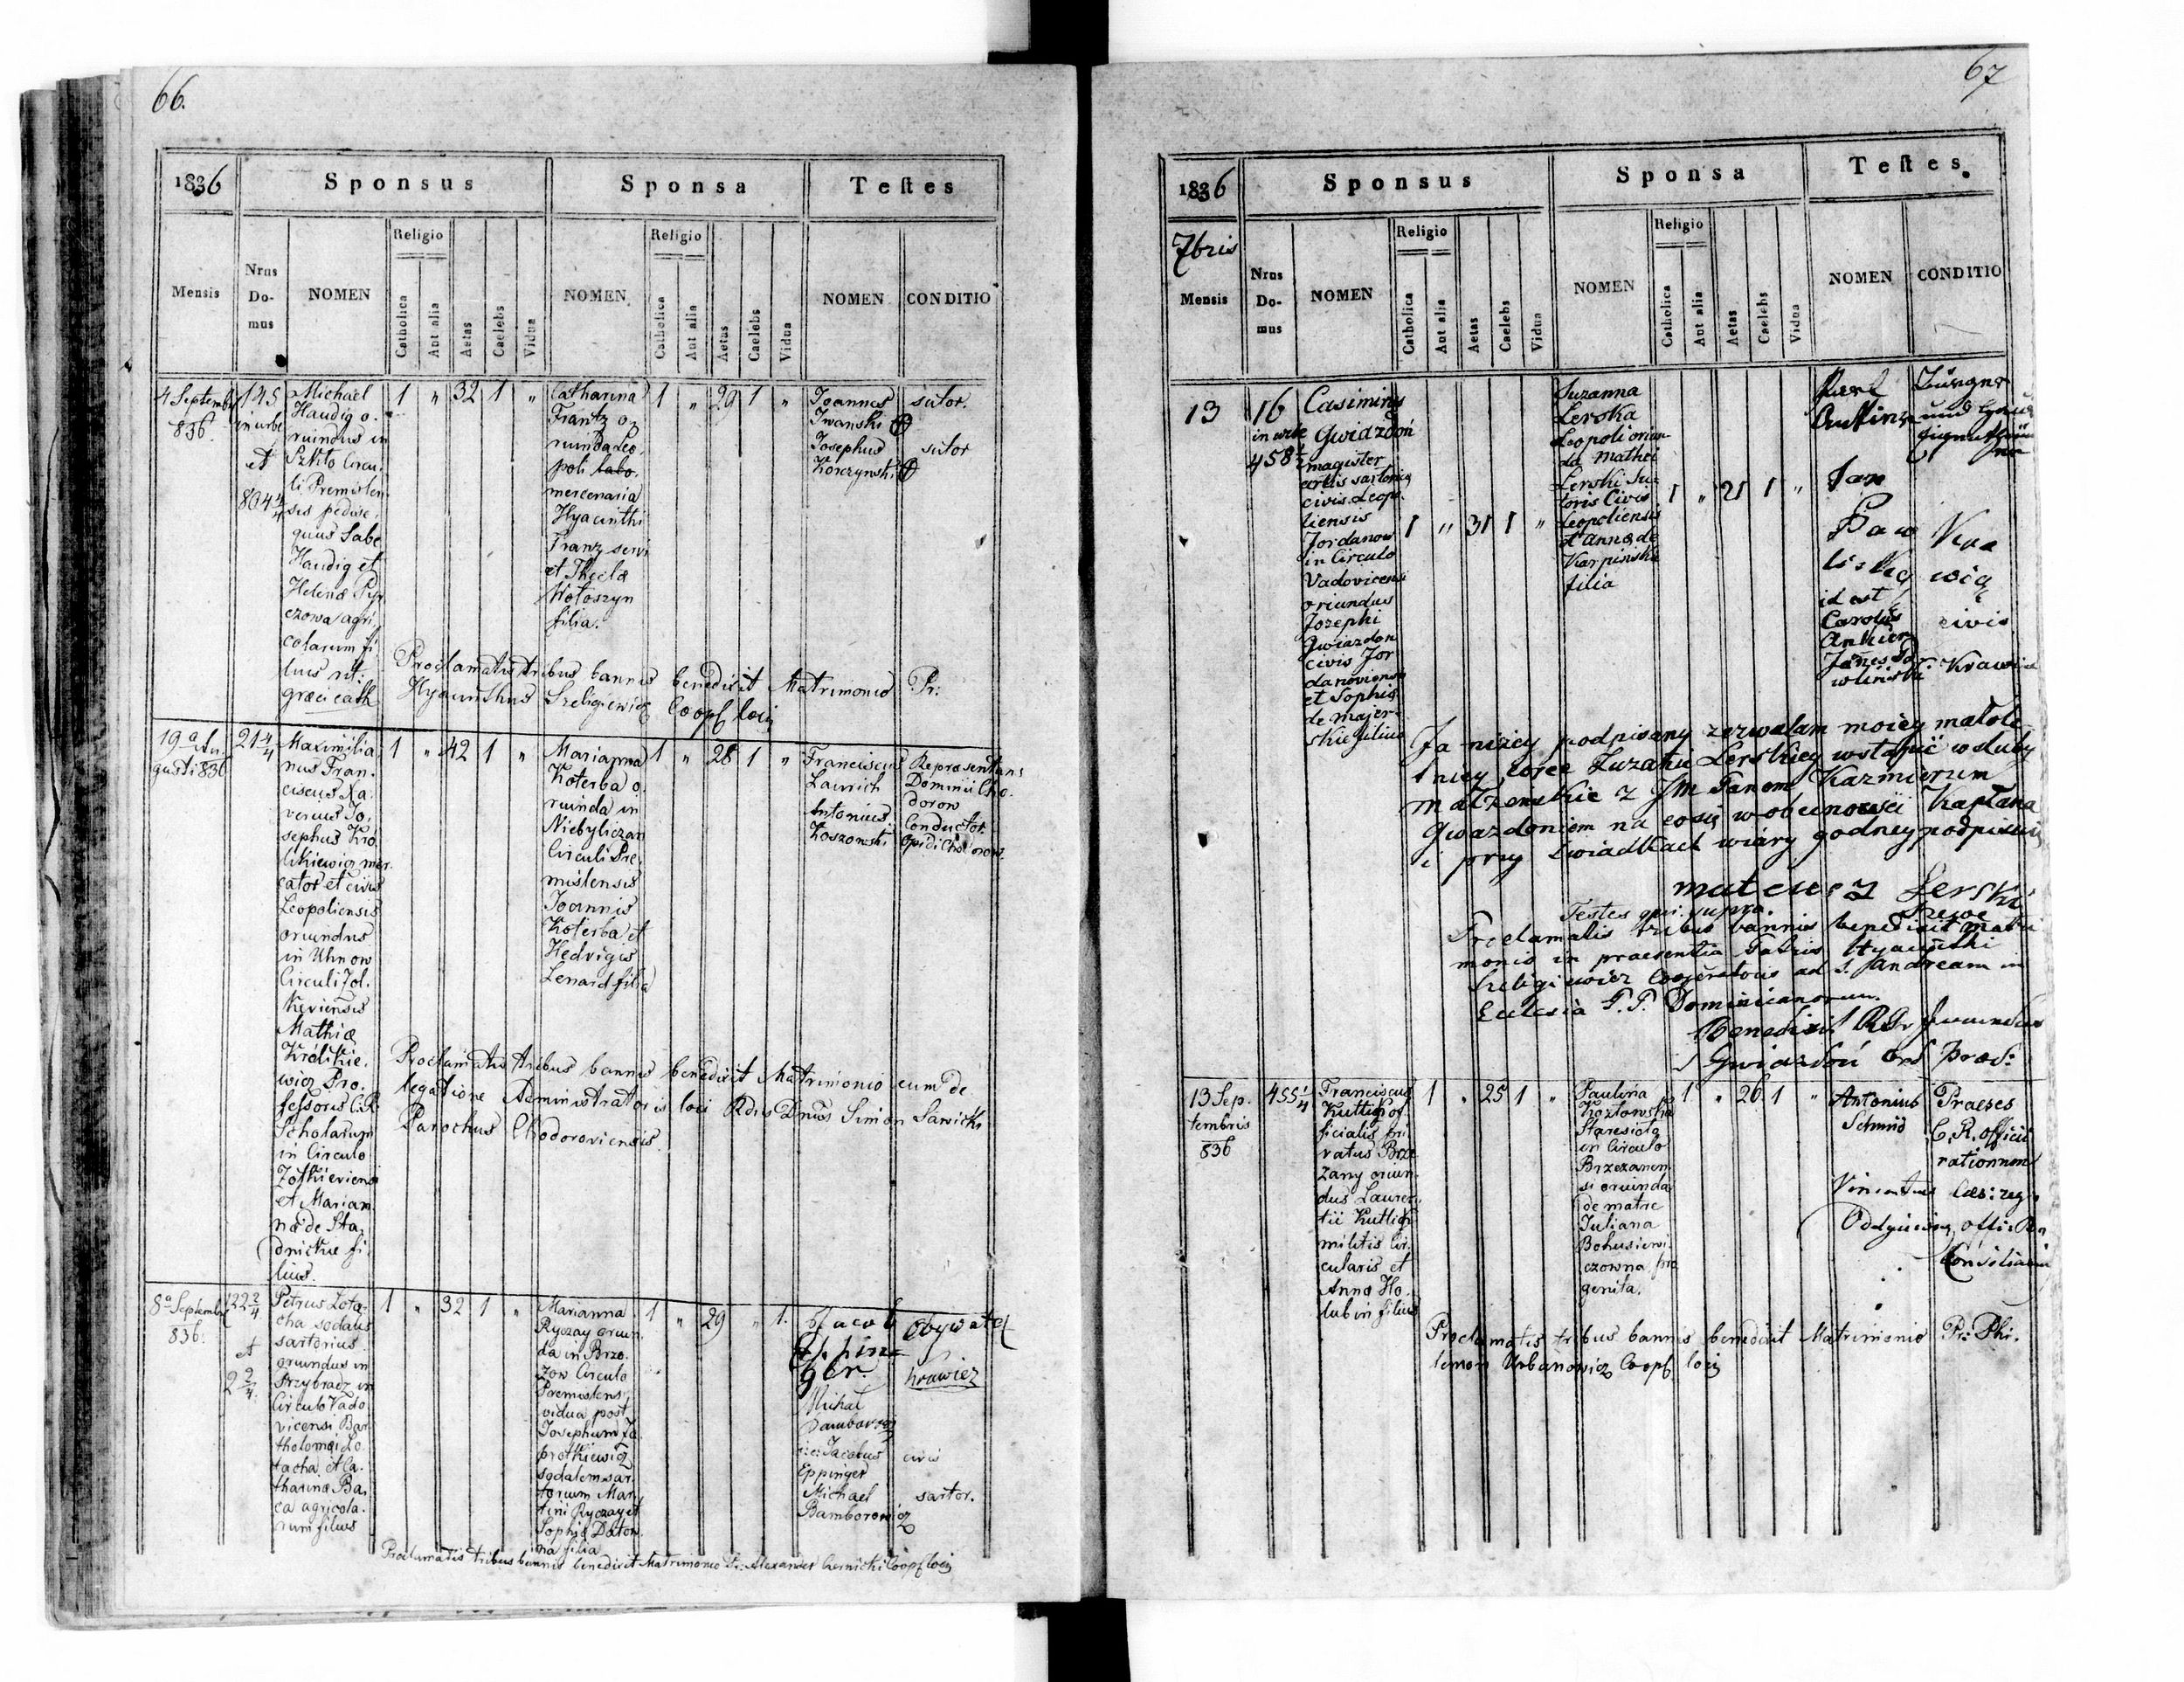 66.
1836
Sponsus
Sponsa
Testes
Mensis
Nrus
Do-
mus
NOMEN
Religio
Catholica
Aut alia
Aetas
Caelebs
Vidua
NOMEN
Religio
Catholica
Aut alia
Aetas
Caelebs
Vidua
NOMEN
CONDITIO
4 Septembr
836.
145
in urbe
et
804 4/4
Michael
Haudig o.
riundus in
Szkło Circu.
li Premislen
sis pedise.
quus Sabe
Haudig et
Helenæ
czowa agri.
colarum fi
lius rit:
græci cath
1 " 32 1 "
Catharina
Frantz o.
riunda Leo.
poli labo.
mercenaria
Hyacinthi
Franz servi
et Theclæ
Wołoszyn
filia.
1 " 29 1 "
Joannes
Iwanski
Josephus
Korczynski
sutor.
sutor
Proclamatis tribus bannis benedixit Matrimonio Pr:
Hyacinthus Szeligiewicz Coop loci
19a Au.
gusti 836
21 4/4
Maximilia
nus Fran.
ciscus Xa.
verius Jo.
sephus Kró
likiewicz mer.
cator et civis
Leopoliensis
oriundus
in Uhnow
Circuli Zol.
kieviensis
Mathiæ
Królikie.
wicz Pro.
fessoris C.R.
Scholarum
in Circulo
Zołkieviens
et Marian
næ de Sta.
dnickie fi.
lius.
1 " 42 1 "
Marianna
Koterba o.
riunda in
Niebyliczan
Circuli Pre.
mislensis
Joannis
Koterba et
Hedvigis
Lenard filia
1 " 28 1 "
Franciscus
Laurich
Antonius
Koszowski
Repræsentans
Dominii Cho.
dorow
Conductor
opidi Chodorow.
Proclamatis tribus bannis benedixit Matrimonio cum de
legatione Administratoris loci Rdus Dnus Simon Sawicki
Parochus Chodoroviensis
8a Septembr
836.
122 2/4
et
2 2/4.
Petrus Łota
cha sodalis
sartorius
oriundus in
Przybradz in
Circulo Vado
vicensi Bar
tholomei Lo
tacha et Ca.
tharinæ Ba.
ca agricola.
rum filius
1 " 32 1 "
Marianna
Ryczay oriun.
da in Brzo.
zow Circulo
Premislens.
vidua post
Josephum Ja
protkiewicz
sodalem sar.
torium Mar
tini Ryczay et
Sophiæ Daton
na filia
1 " 29 " 1.
Jacob
Eppin=
ger.
Michał
Bamborowicz
i.e. Jacobus
Eppinger
Michael
Bamborowicz
obywatel
krawiec
civis
sartor.
Proclamatis tribus bannis benedixit Matrimonio Pr: Alexander Czernicki Coop loci
67
1836
Sponsus
Sponsa
Testes
7bris
Mensis
Nrus
Do-
mus
NOMEN
Religio
Catholica
Aut alia
Aetas
Caelebs
Vidua
NOMEN
Religio
Catholica
Aut alia
Aetas
Caelebs
Vidua
NOMEN
CONDITIO
13
16
in urbe
458 1/2
Casimirus
Gwiazdoń
magister
artis sartoriæ
civis Leopo.
liensis
Jordanow
in Circulo
Vadovicensi
oriundus
Jozephi
Gwiazdon
civis Jor
danoviensis
et Sophiæ
de Majer
skie filius
1 " 31 1 "
Suzanna
Lerska
Leopoli oriun
da Mathei
Lerski Su
toris Civis
Leopoliensis
et Annæ de
Karpinskie
filia
1 " 21 1 "
Karl
Jan
Paw
liski
id est
Carolus
Ankier
Joannes Pa
wlinski
Bürger
und Haus
Kra
wic
civis
Krawiec
Ja niżey podpisany zezwalam moiey małole
tniey corce Zuzannie Lerskiey wstąpić w sluby
małżeńskie z Jm Panem Kazmierzem
Gwazdoniem na co się w obecnosci Kapłana
i przy swiadkach wiary godney podpisuię
mateusz Lerski
Testes qui supra.
Proclamatis tribus bannis benedixit matri
monio in praesentia Patris Hyacinthi
Szeligiewicz Cooperatoris ad S. Andream in
Eclesia P.P. Dominicanorum.
Benedixit
Gwiazdoń Ord Praed:
13 Sep.
tembris
836
455 1/4
Franciscus
Kuttig of
ficialis pri
vatus Brze
zany oriun
dus Lauren
tii Kuttig
militis Cir.
cularis et
Anna Ho.
lub in filius
1 " 25 1 "
Paulina
Kozłowska
Staresioło
in Circulo
Brzezanen
si oriunda
de matre
Juliana
Bohusiewi.
czowna pro
genita.
1 " 26 1 "
Antonius
Schmid
Vincentius
Praeses
C. R. officii
rationum
Caes: reg:
Consiliarius
Proclamatis tribus bannis benedixit Matrimonio Pr: Phi.
lemon Urbanowicz Coop loci